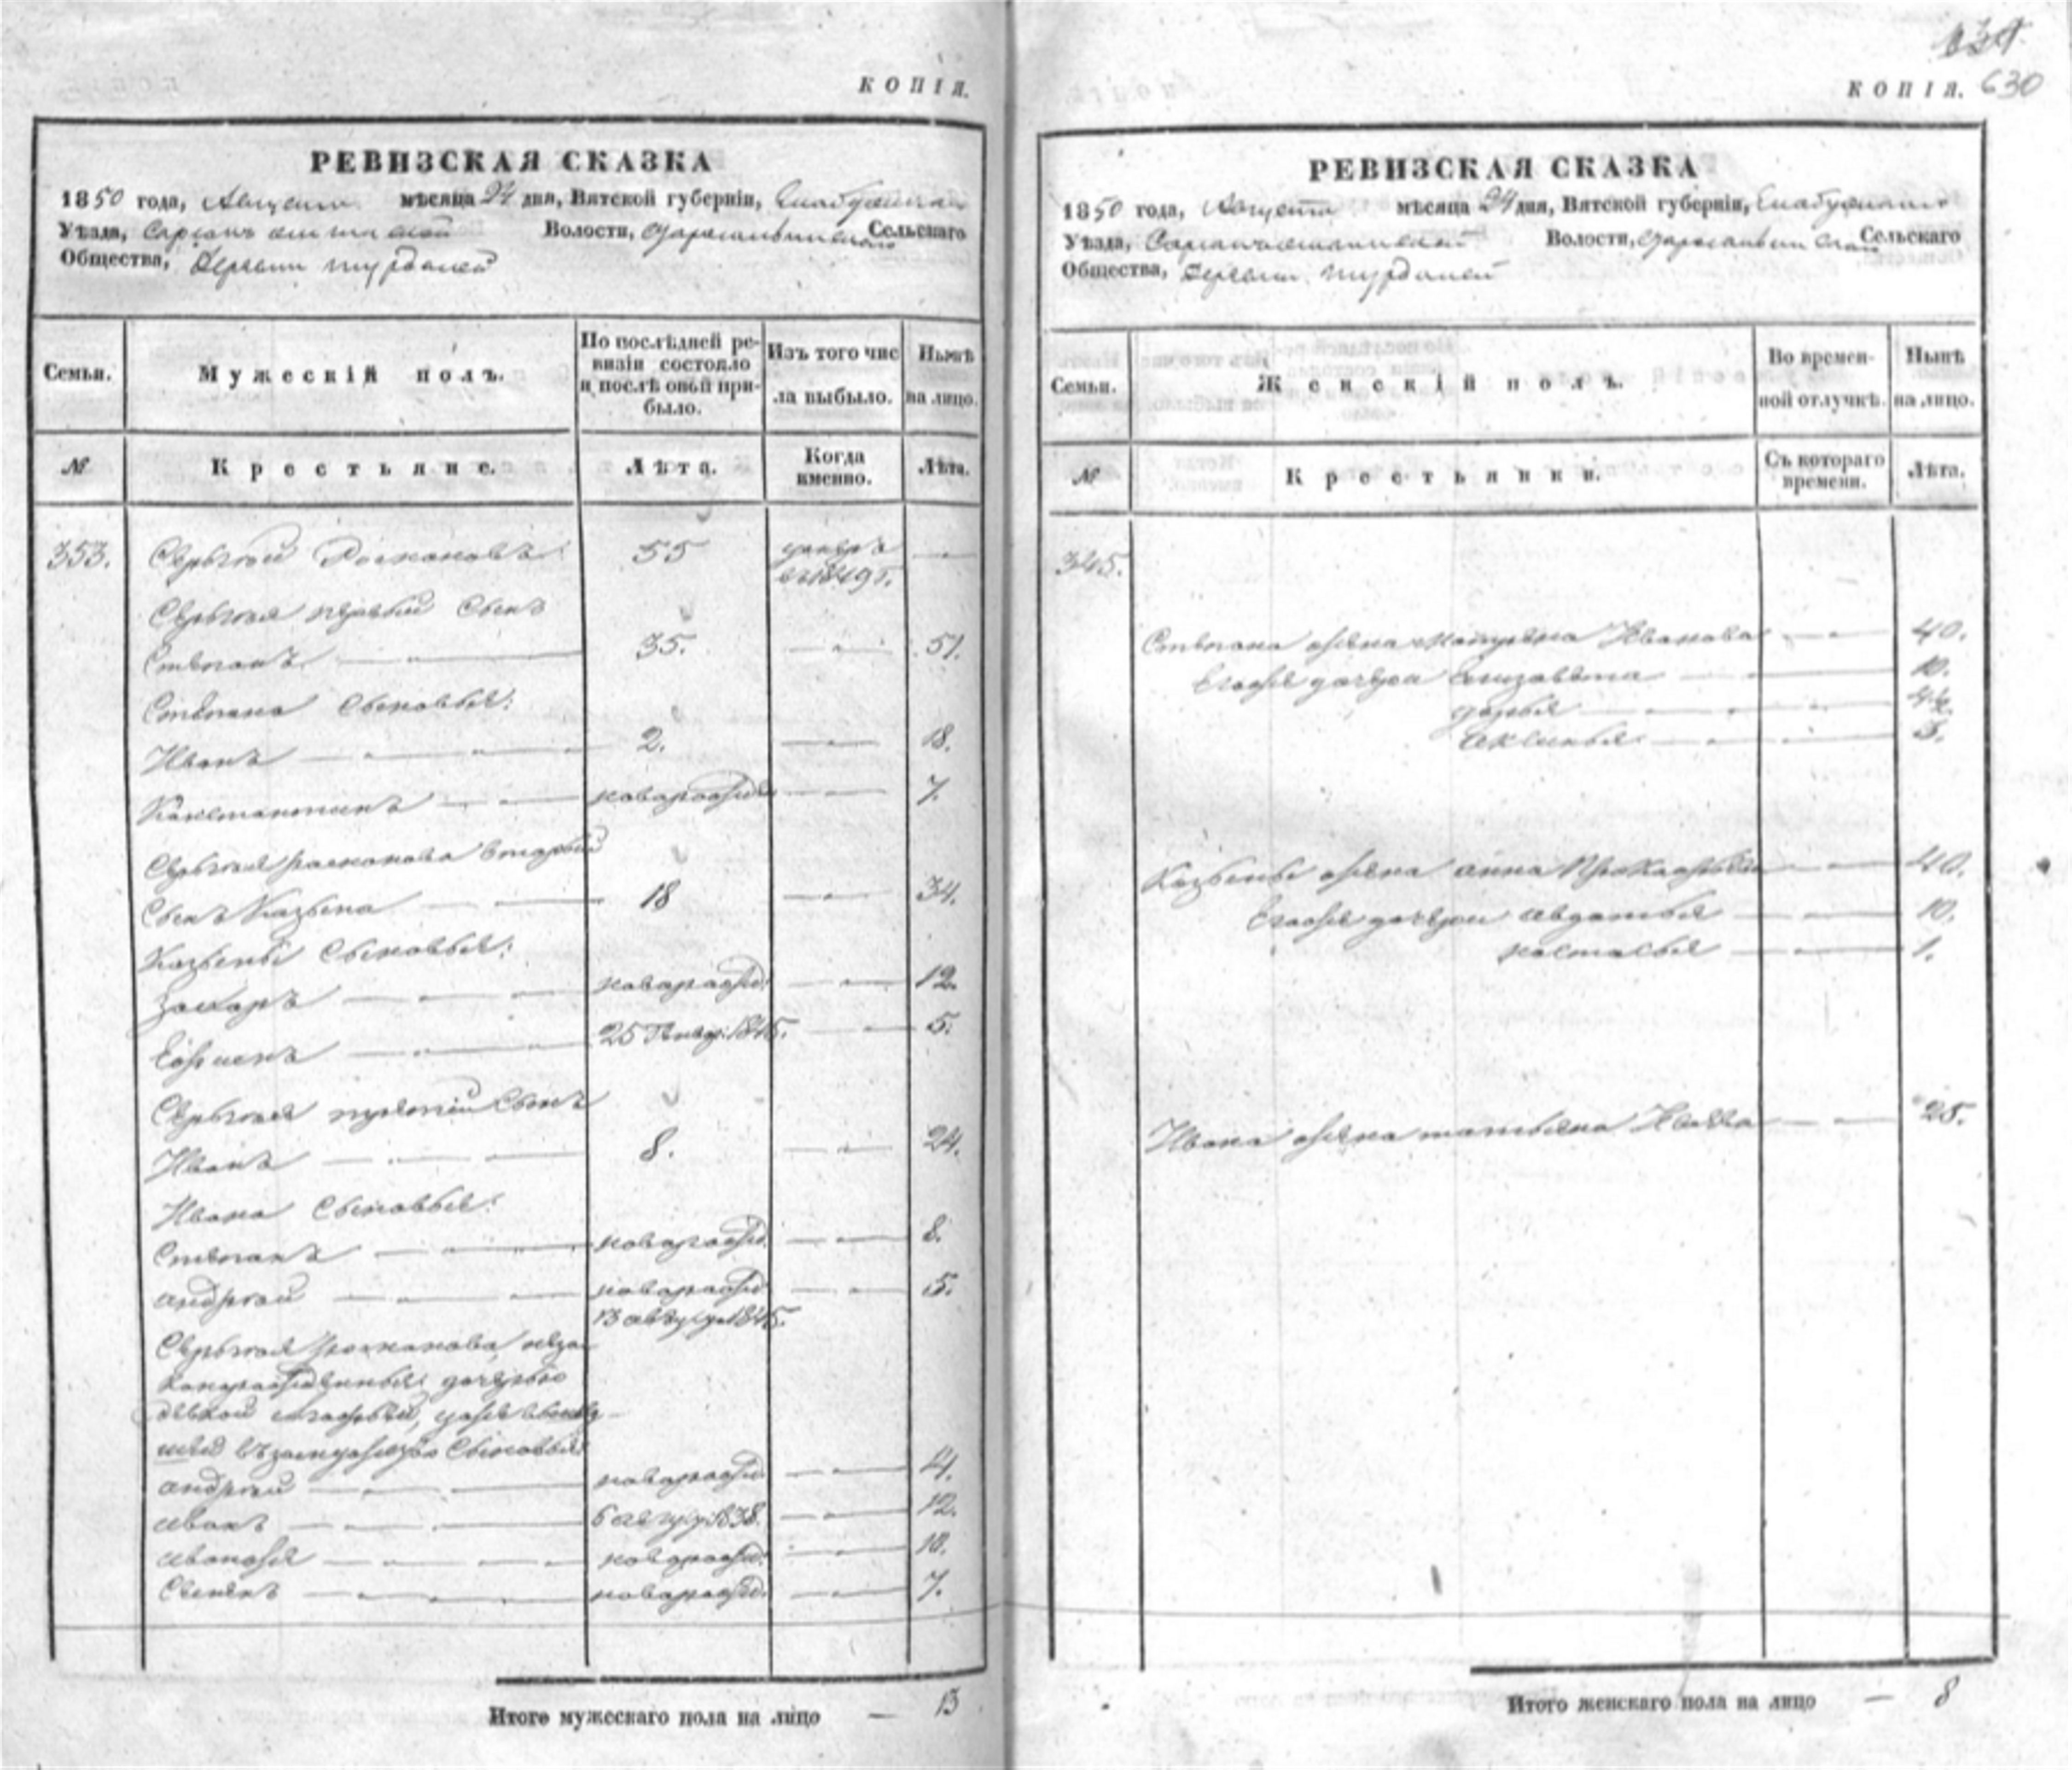 КОПІЯ.
РЕВИЗСКАЯ СКАЗКА
1850 года, Августа мѣсяца 24 дня, Вятской губерніи, Елабужскаго
Уѣзда, Волости, Сельскаго
Общества, Деревни
Семьи.
Мужескій полъ.
По послѣдней ре-
визіи состояло
и послѣ оной при-
было.
Изъ того чис
ла выбыло.
Нынѣ
на лицо.
№
Крестьяне.
Лѣта.
Когда
именно.
Лѣта.
353. Сергѣй 55 умеръ —
въ 1849 г.
Сергѣя первый Сынъ
Степанъ 35. — 51.
Степана Сыновья:
Иванъ 2. — 18.
Константинъ новорожд — 7.
Сергѣя второй
Сынъ Козьма 18 — 34.
Козьмы Сыновья:
Захаръ новорожд. — 12.
Ефимъ 25 Январ. 1845. — 5.
Сергѣя третій Сынъ
Иванъ 8. — 24.
Ивана Сыновья:
Степанъ новорожд. — 8.
Андрей новорожд — 5.
13 август 1845.
Сергѣя неза-
коннорожденные дочерью
девкой уже
въ замужество Сыновья:
Андрей новорожд. — 4.
Иванъ 6 август 1838. — 12.
новорожд. — 10.
новорожд. — 7.
Итого мужескаго пола на лицо — 13
630
КОПІЯ.
РЕВИЗСКАЯ СКАЗКА
1850 года, Августа мѣсяца 24 дня, Вятской губерніи, Елабужскаго
Уѣзда, Волости, Сельскаго
Общества, Деревни
Семьи.
Женскій полъ.
Во времен-
ной отлучкѣ.
Нынѣ
на лицо.
№
Крестьянки.
Съ котораго
времени.
Лѣта.
345.
Степана жена Иванова — 40.
Егоже дочери Елизавета — 10.
Дарья —
Акулина — 3.
Козьмы жена Анна — 40.
Егоже дочери Авдотья — 10.
Настасья — 1.
Ивана жена Татьяна — 25.
Итого женскаго пола на лицо — 8